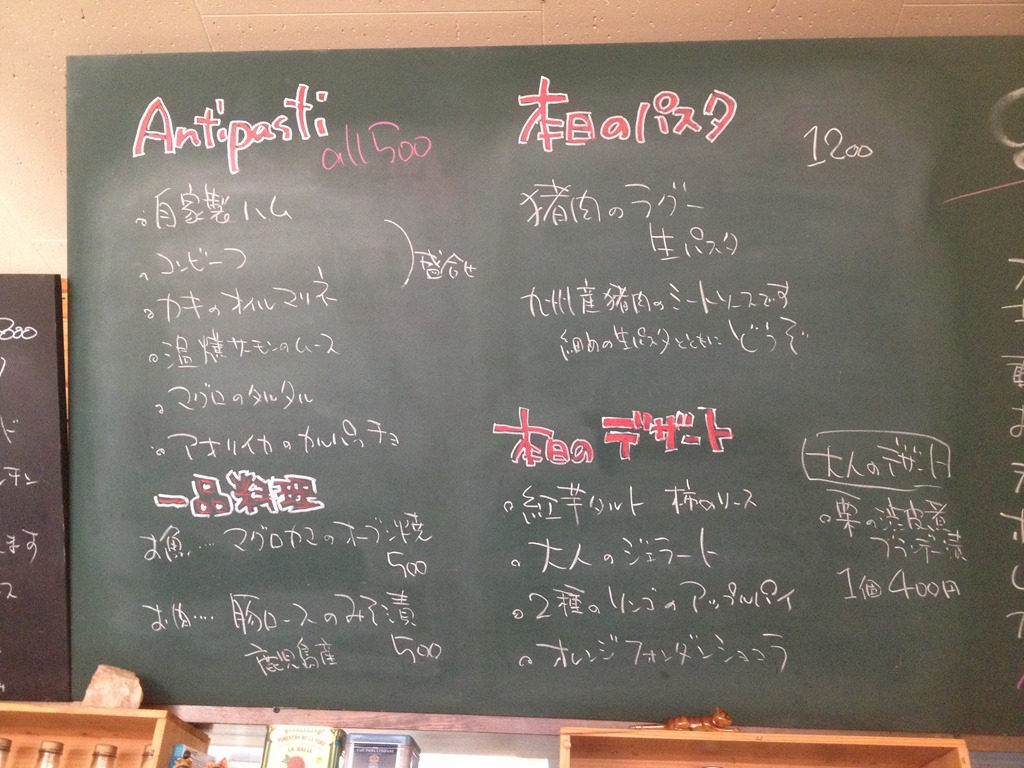 Antipasti
all 500
自家製ハム
コンビーフ
カキのオイルマリネ
盛合せ
温燻サーモンのムース
マグロのタルタル
アオリイカのカルパッチョ
一品料理
お魚…. マグロカマのオーブン焼
500
お肉…. 豚ロースのみそ漬
鹿児島産
500
本日のパスタ
1200
猪肉のラグー
生パスタ
九州産猪肉のミートソースです
細めの生パスタとともにどうぞ
本日のデザート
紅芋タルト 柿のソース
大人のジェラート
2種のリンゴのアップルパイ
オレンジフォンダンショコラ
大人のデザート
栗の渋皮煮
ブランデー漬
1個400円